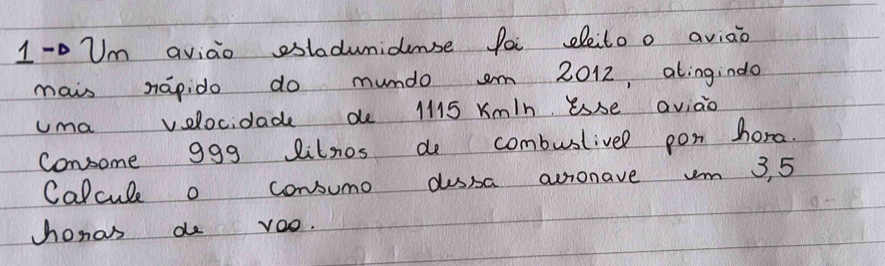 1-> Um avião estadunidense foi eleito o avião
mais rápido do mundo em 2012, atingindo
uma velocidade de 1115 Km/h. Esse avião
Consome 999 litros de combustivel por hora.
Calcule o consumo dessa aeronave em 3,5
horas de voo.